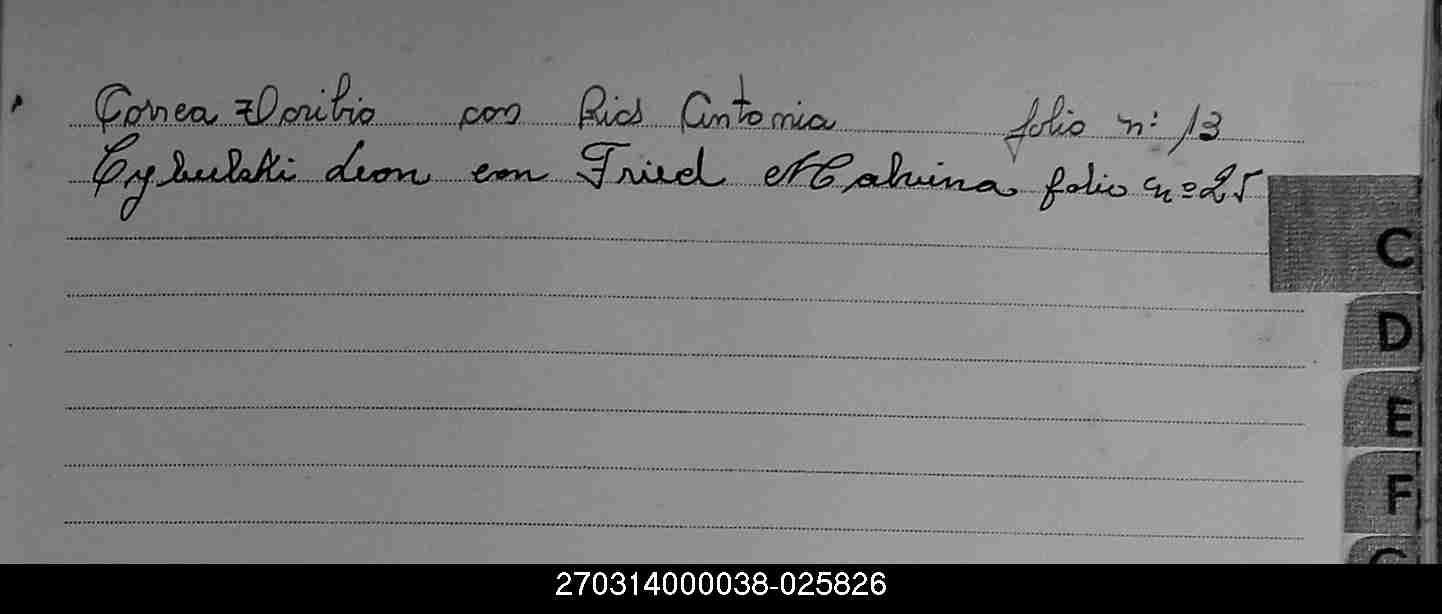 Correa Toribio con Rios Antonia folio n: 13
Cybulski Leon con Fried Malvina folio nº 25
C
D
E
F
G
270314000038-025826